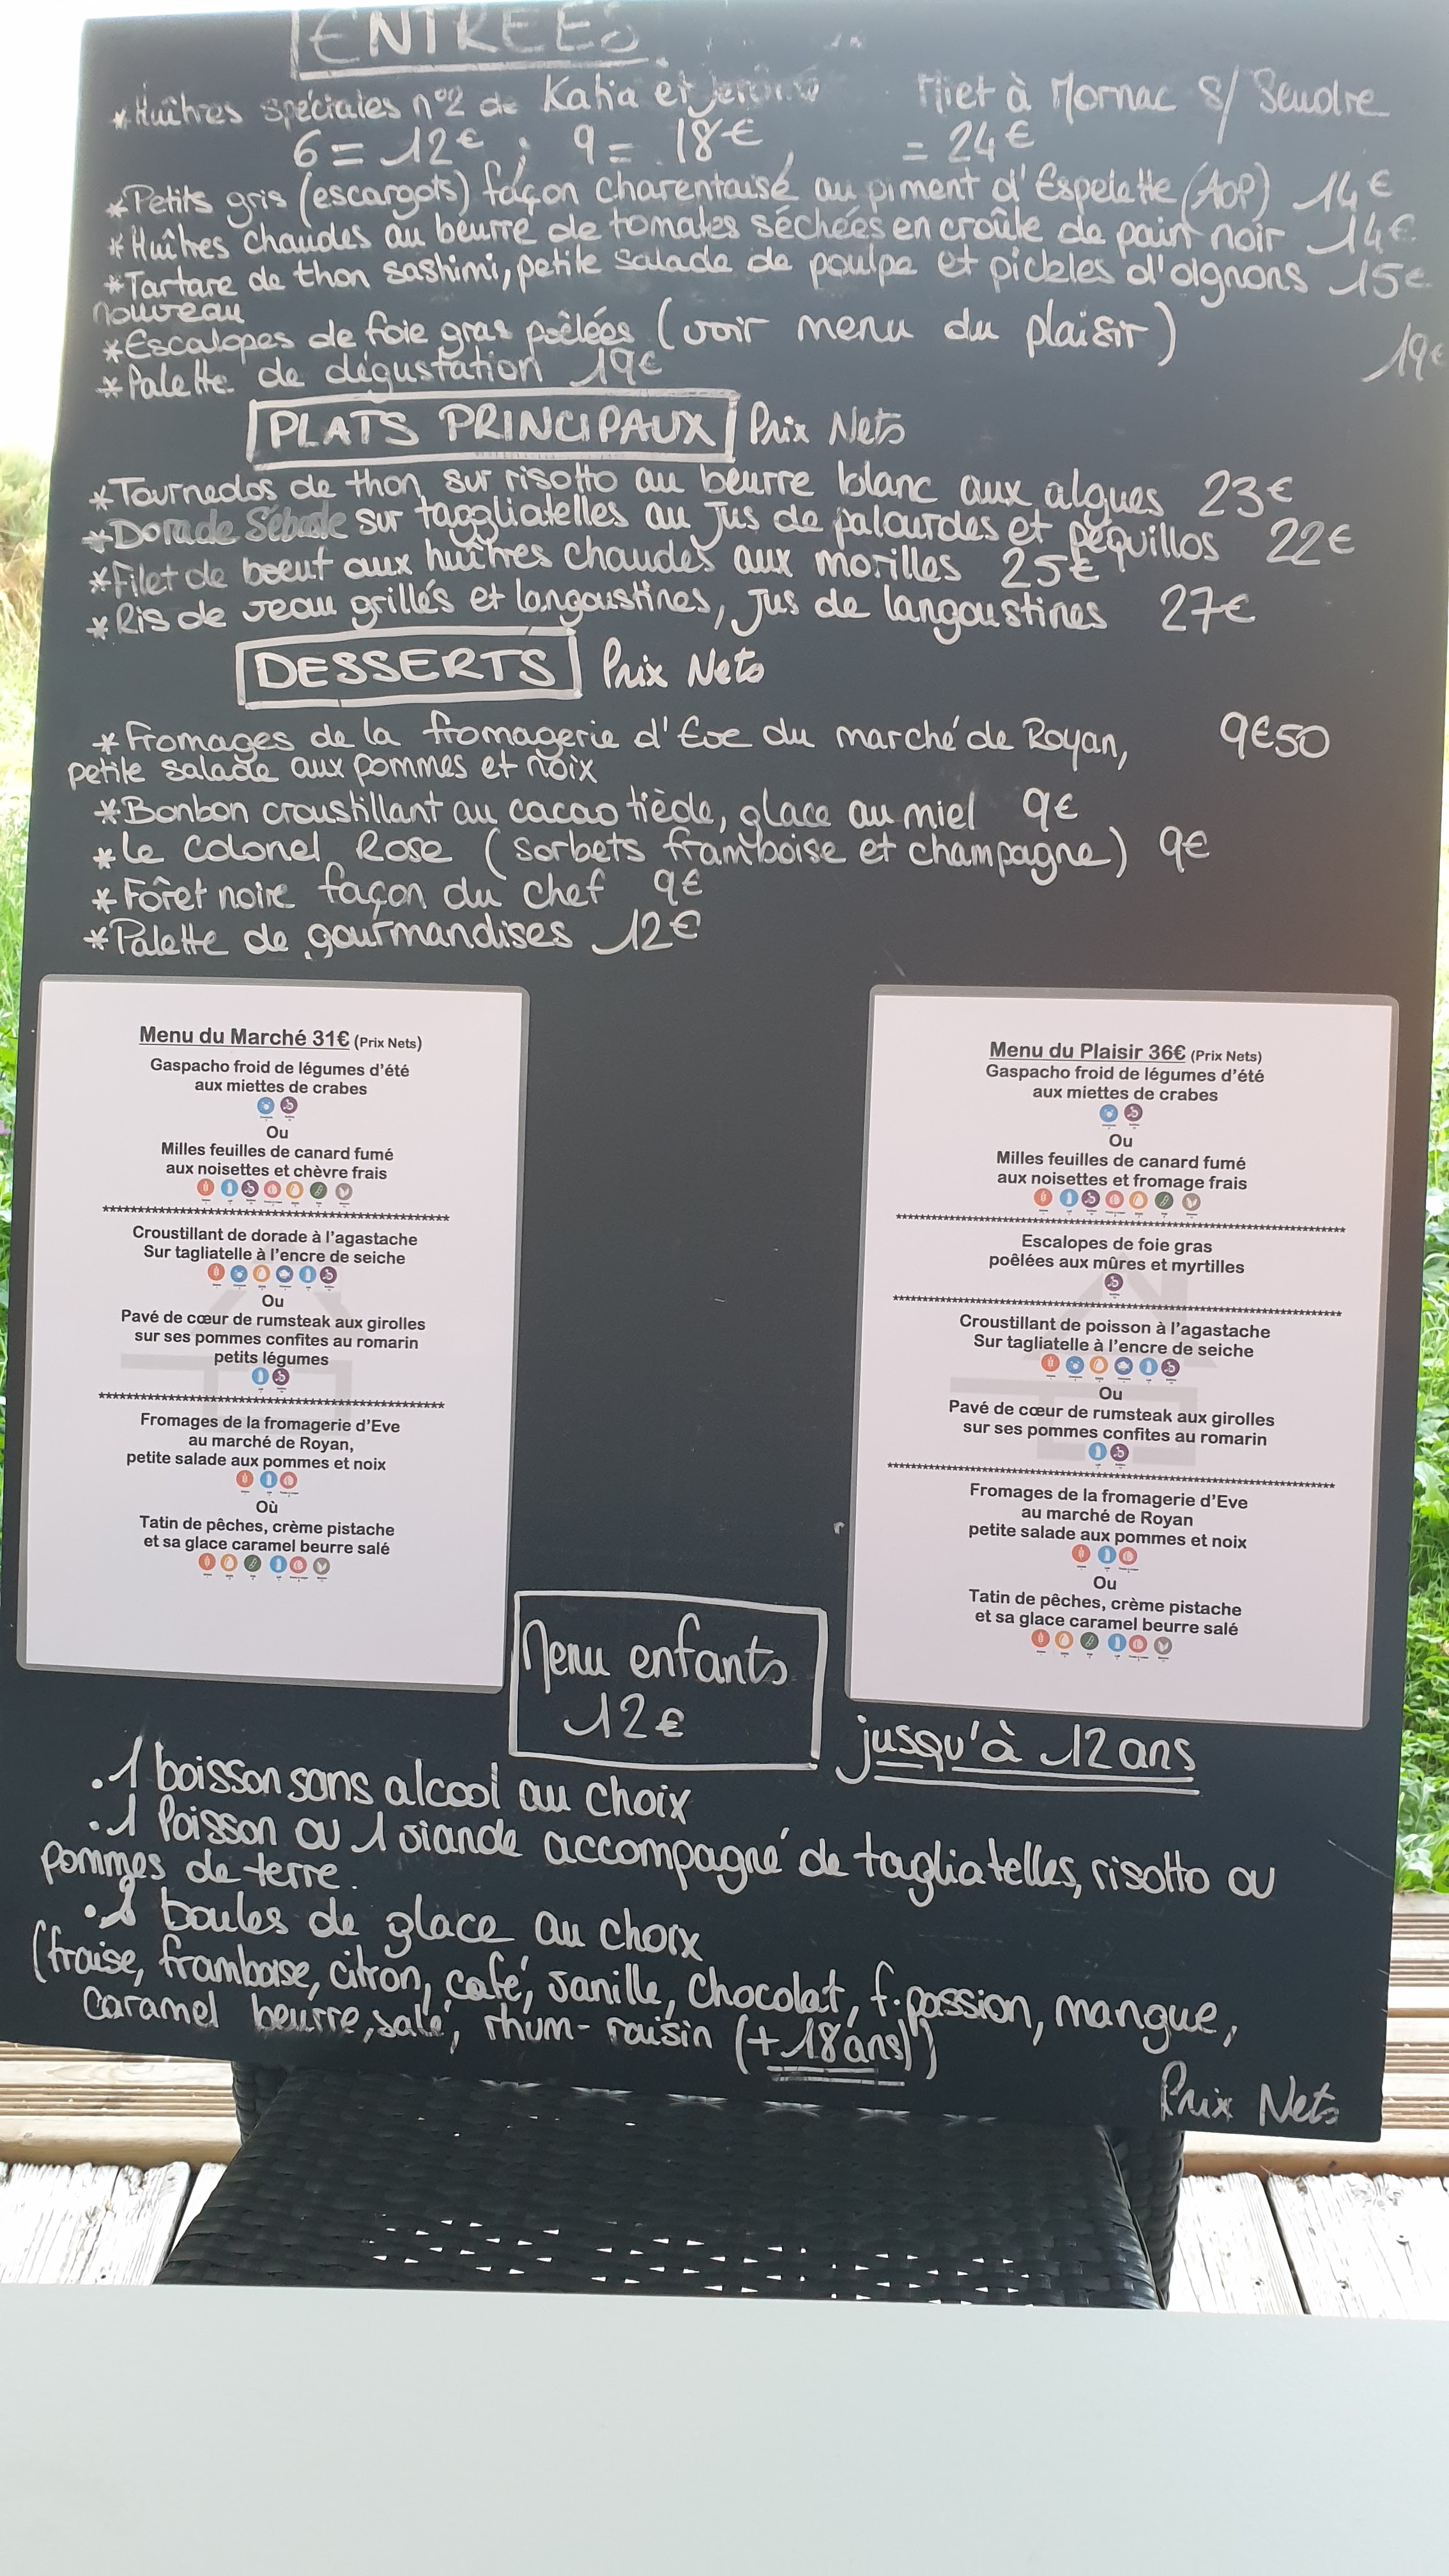 ENTRÉES
*Huîtres spéciales n°2 de Katia et Jérôme Miet à Mornac S/ Seudre
6 = 12€ ; 9 = 18€, = 24€
*Petits gris (escargots) façon charentaise au piment d'Espelette (AOP) 14€
*Huîtres chaudes au beurre de tomates séchées en croûte de pain noir 14€
*Tartare de thon sashimi, petite salade de poulpe et pickles d'oignons 15€
nouveau
*Escalopes de foie gras poêlées (voir menu du plaisir) 19€
*Palette de dégustation 19€
PLATS PRINCIPAUX Prix Nets
*Tournedos de thon sur risotto au beurre blanc aux algues 23€
*Dorade Sébaste sur taggliatelles au jus de palourdes et péquillos 22€
*Filet de boeuf aux huîtres chaudes aux morilles 25€
*Ris de veau grillés et langoustines, jus de langoustines 27€
DESSERTS Prix Nets
*Fromages de la fromagerie d'Eve du marché de Royan, 9€50
petite salade aux pommes et noix
*Bonbon croustillant au cacao tiède, glace au miel 9€
*Le Colonel Rose (sorbets framboise et champagne) 9€
*Fôret noire façon du chef 9€
*Palette de gourmandises 12€
Menu du Marché 31€ (Prix Nets)
Gaspacho froid de légumes d'été
aux miettes de crabes
Ou
Milles feuilles de canard fumé
aux noisettes et chèvre frais
**************************************************
Croustillant de dorade à l'agastache
Sur tagliatelle à l'encre de seiche
Ou
Pavé de cœur de rumsteak aux girolles
sur ses pommes confites au romarin
petits légumes
**************************************************
Fromages de la fromagerie d'Eve
au marché de Royan,
petite salade aux pommes et noix
Où
Tatin de pêches, crème pistache
et sa glace caramel beurre salé
Menu du Plaisir 36€ (Prix Nets)
Gaspacho froid de légumes d'été
aux miettes de crabes
Ou
Milles feuilles de canard fumé
aux noisettes et fromage frais
**************************************************
Escalopes de foie gras
poêlées aux mûres et myrtilles
**************************************************
Croustillant de poisson à l'agastache
Sur tagliatelle à l'encre de seiche
Ou
Pavé de cœur de rumsteak aux girolles
sur ses pommes confites au romarin
**************************************************
Fromages de la fromagerie d'Eve
au marché de Royan
petite salade aux pommes et noix
Ou
Tatin de pêches, crème pistache
et sa glace caramel beurre salé
Menu enfants
12€
jusqu'à 12 ans
.1 boisson sans alcool au choix
.1 Poisson ou 1 viande accompagné de tagliatelles, risotto ou
pommes de terre.
. boules de glace au choix
(fraise, framboise, citron, café, vanille, chocolat, f.passion, mangue,
caramel beurre salé, rhum-raisin (+18ans))
Prix Nets